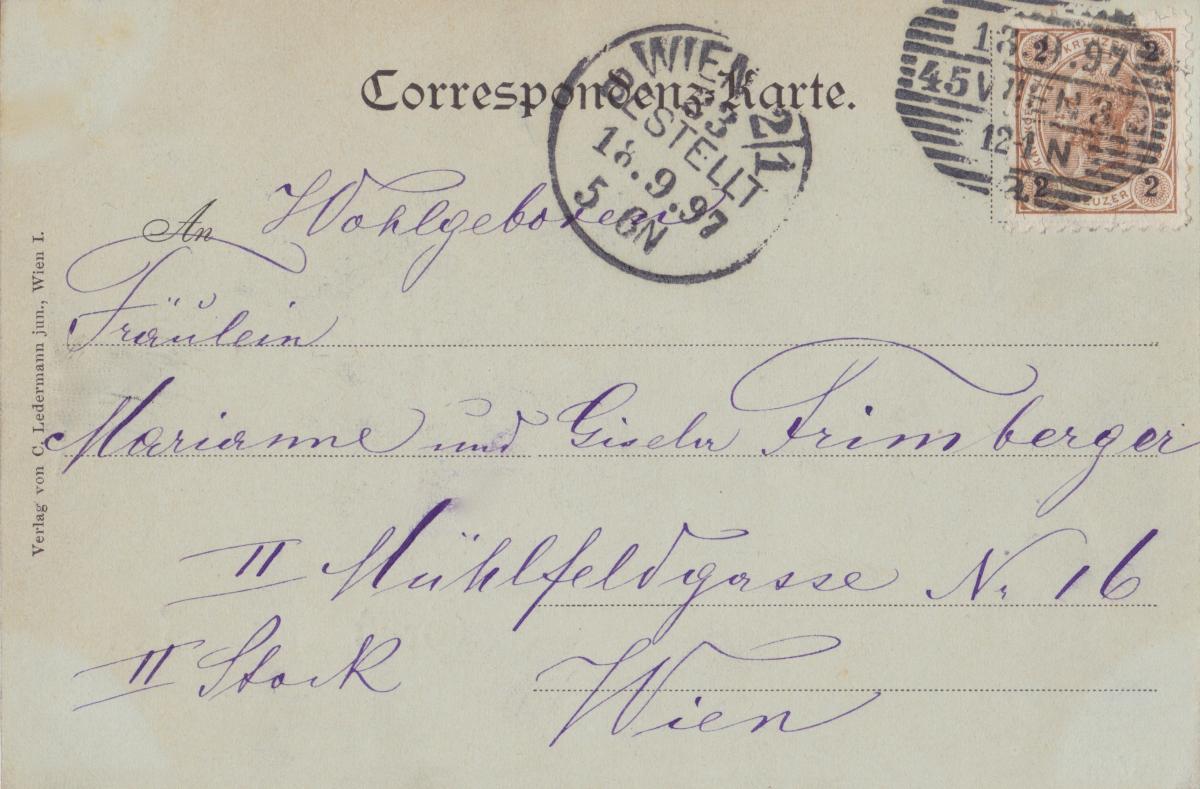 Correspondenz-Karte.
WIEN 2/1
53
BESTELLT
18.9.97
5. 6N
18.9.97
45 VI
12-1 N
2 KREUZER 2
2 KREUZER 2
An Wohlgeboren
Fräulein
Marianne und Gisela Frimberger
II Mühlfeldgasse Nr 16
II Stock
Wien
Verlag von C. Ledermann jun., Wien I.